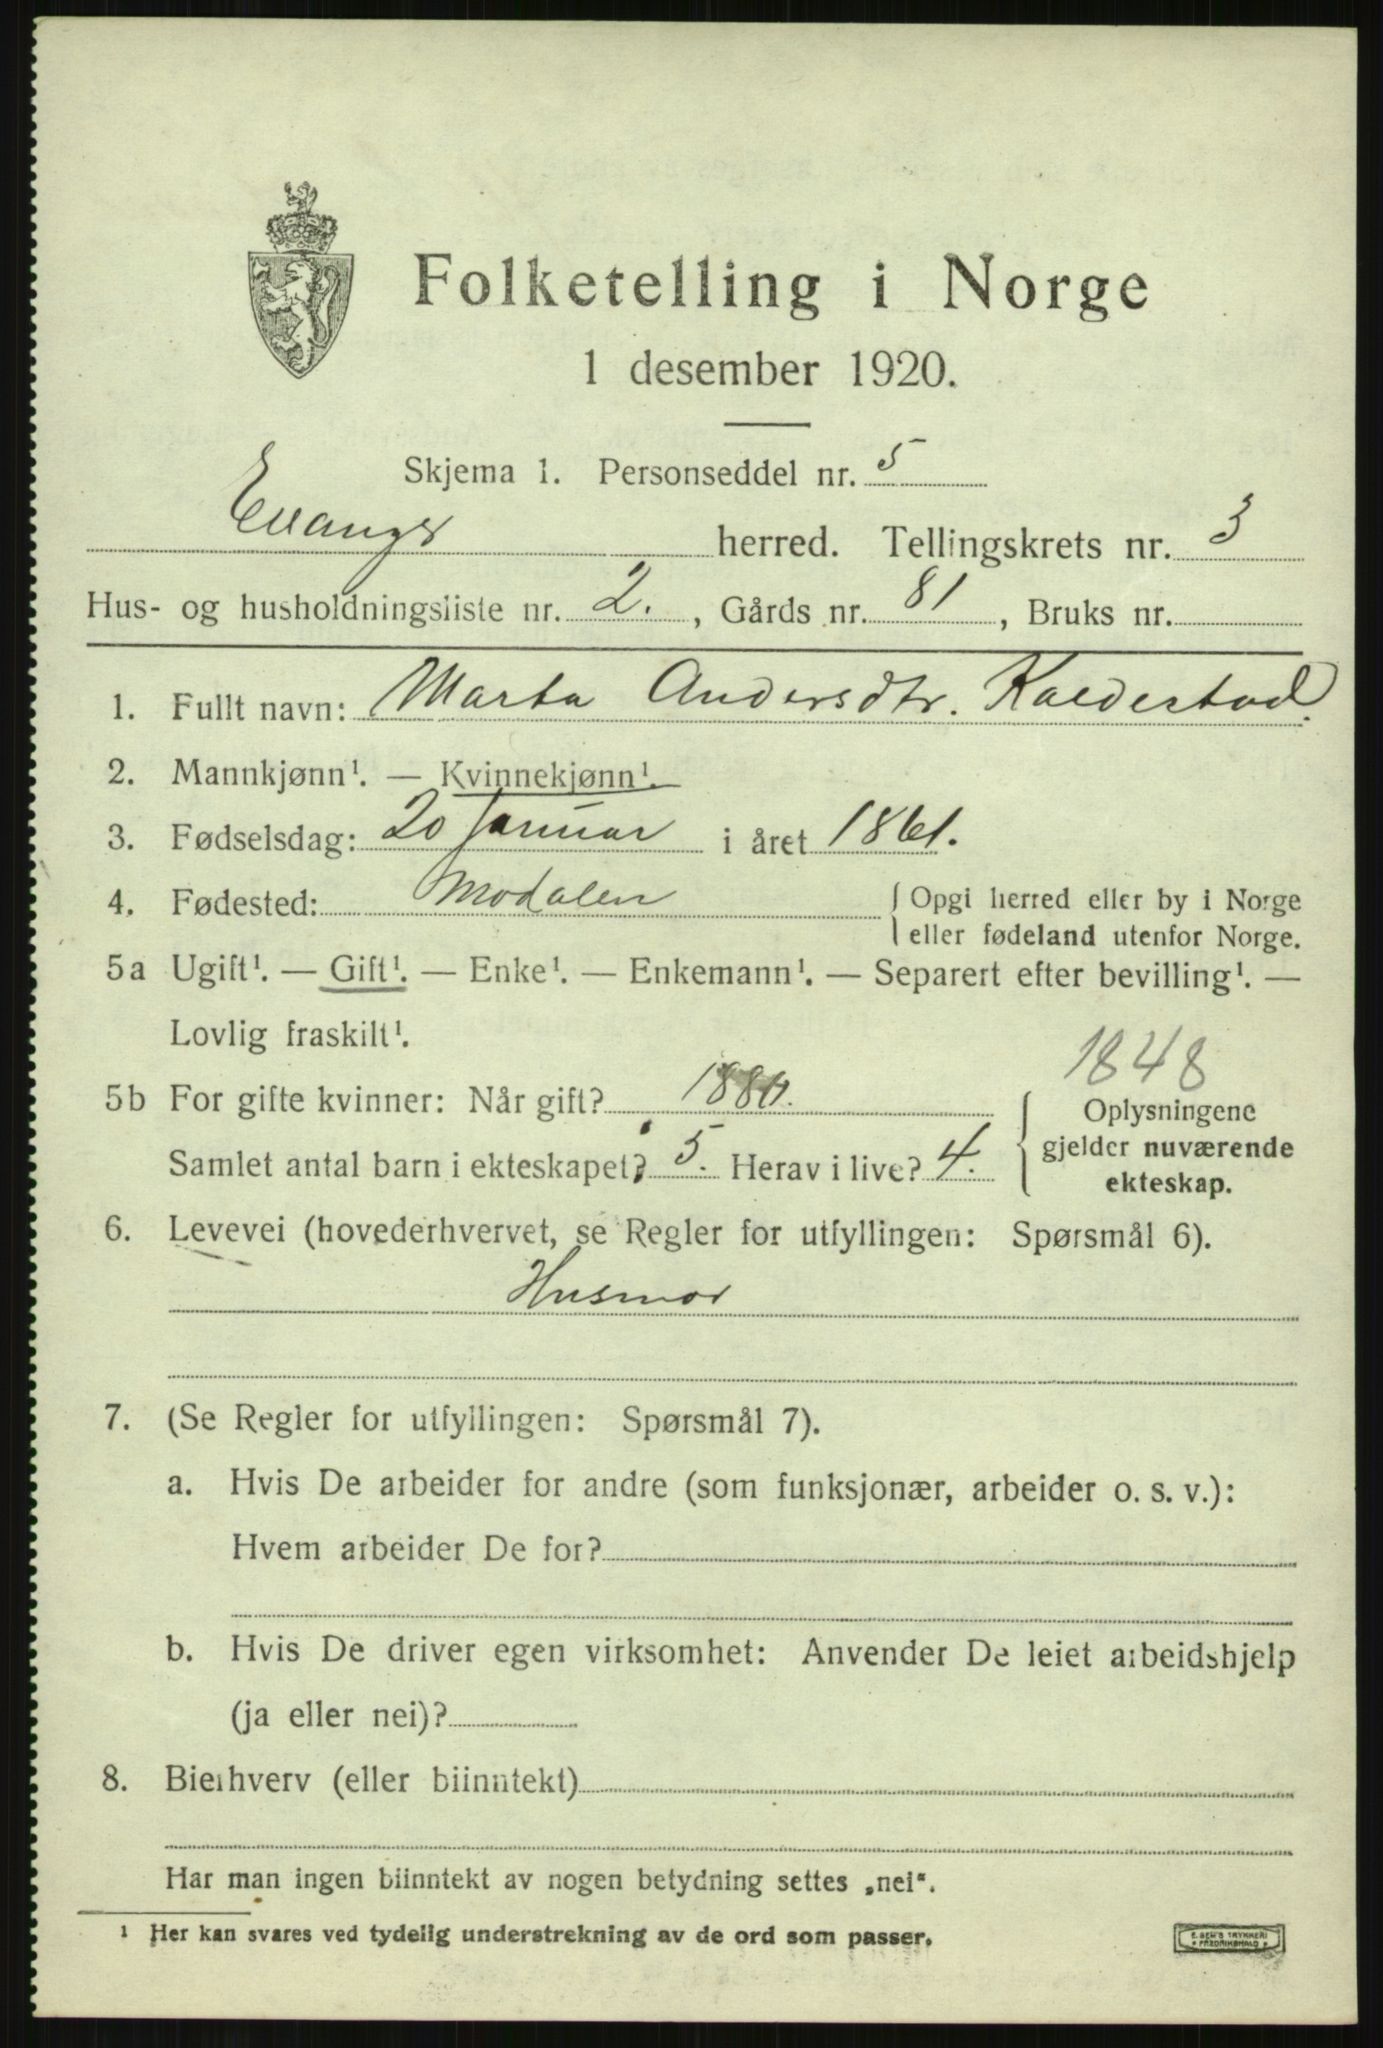 Folketelling i Norge
1 desember 1920.
Skjema 1. Personseddel nr. 5
Evanger herred. Tellingskrets nr. 3
Hus- og husholdningsliste nr. 2. , Gårds nr. 81 , Bruks nr.
1. Fullt navn: Marta Andersdtr. Kaldestad.
2. Mannkjønn¹. — Kvinnekjønn¹.
3. Fødselsdag: 20 Januar i året 1861.
4. Fødested: Modalen { Opgi herred eller by i Norge
eller fødeland utenfor Norge.
5a Ugift¹. — Gift¹. — Enke¹. — Enkemann¹. — Separert efter bevilling¹. —
Lovlig fraskilt¹.
1848
5b For gifte kvinner: Når gift? 1880.
Samlet antal barn i ekteskapet? 5. Herav i live? 4.
{ Oplysningene
gjelder nuværende
ekteskap.
6. Levevei (hovederhvervet, se Regler for utfyllingen: Spørsmål 6).
Husmor
7. (Se Regler for utfyllingen: Spørsmål 7).
a. Hvis De arbeider for andre (som funksjonær, arbeider o. s. v.):
Hvem arbeider De for?
b. Hvis De driver egen virksomhet: Anvender De leiet arbeidshjelp
(ja eller nei)?
8. Bierhverv (eller biinntekt)
Har man ingen biinntekt av nogen betydning settes „nei".
¹ Her kan svares ved tydelig understrekning av de ord som passer.
E. SEM'S TRYKKERI
FREDRIKSHALD